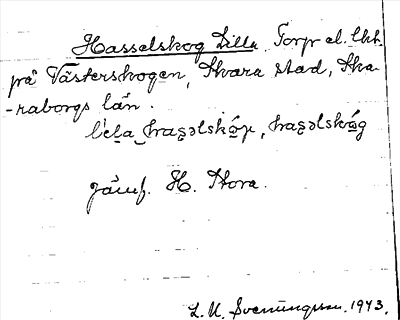 Hasselskog Lilla. Torp el. lht.
på Västerskogen, Skara stad, Ska-
-raborgs län.
lila hasəlskóg, hasəlskóg
jämf. H. Stora.
L. M. Svenungsson. 1943.